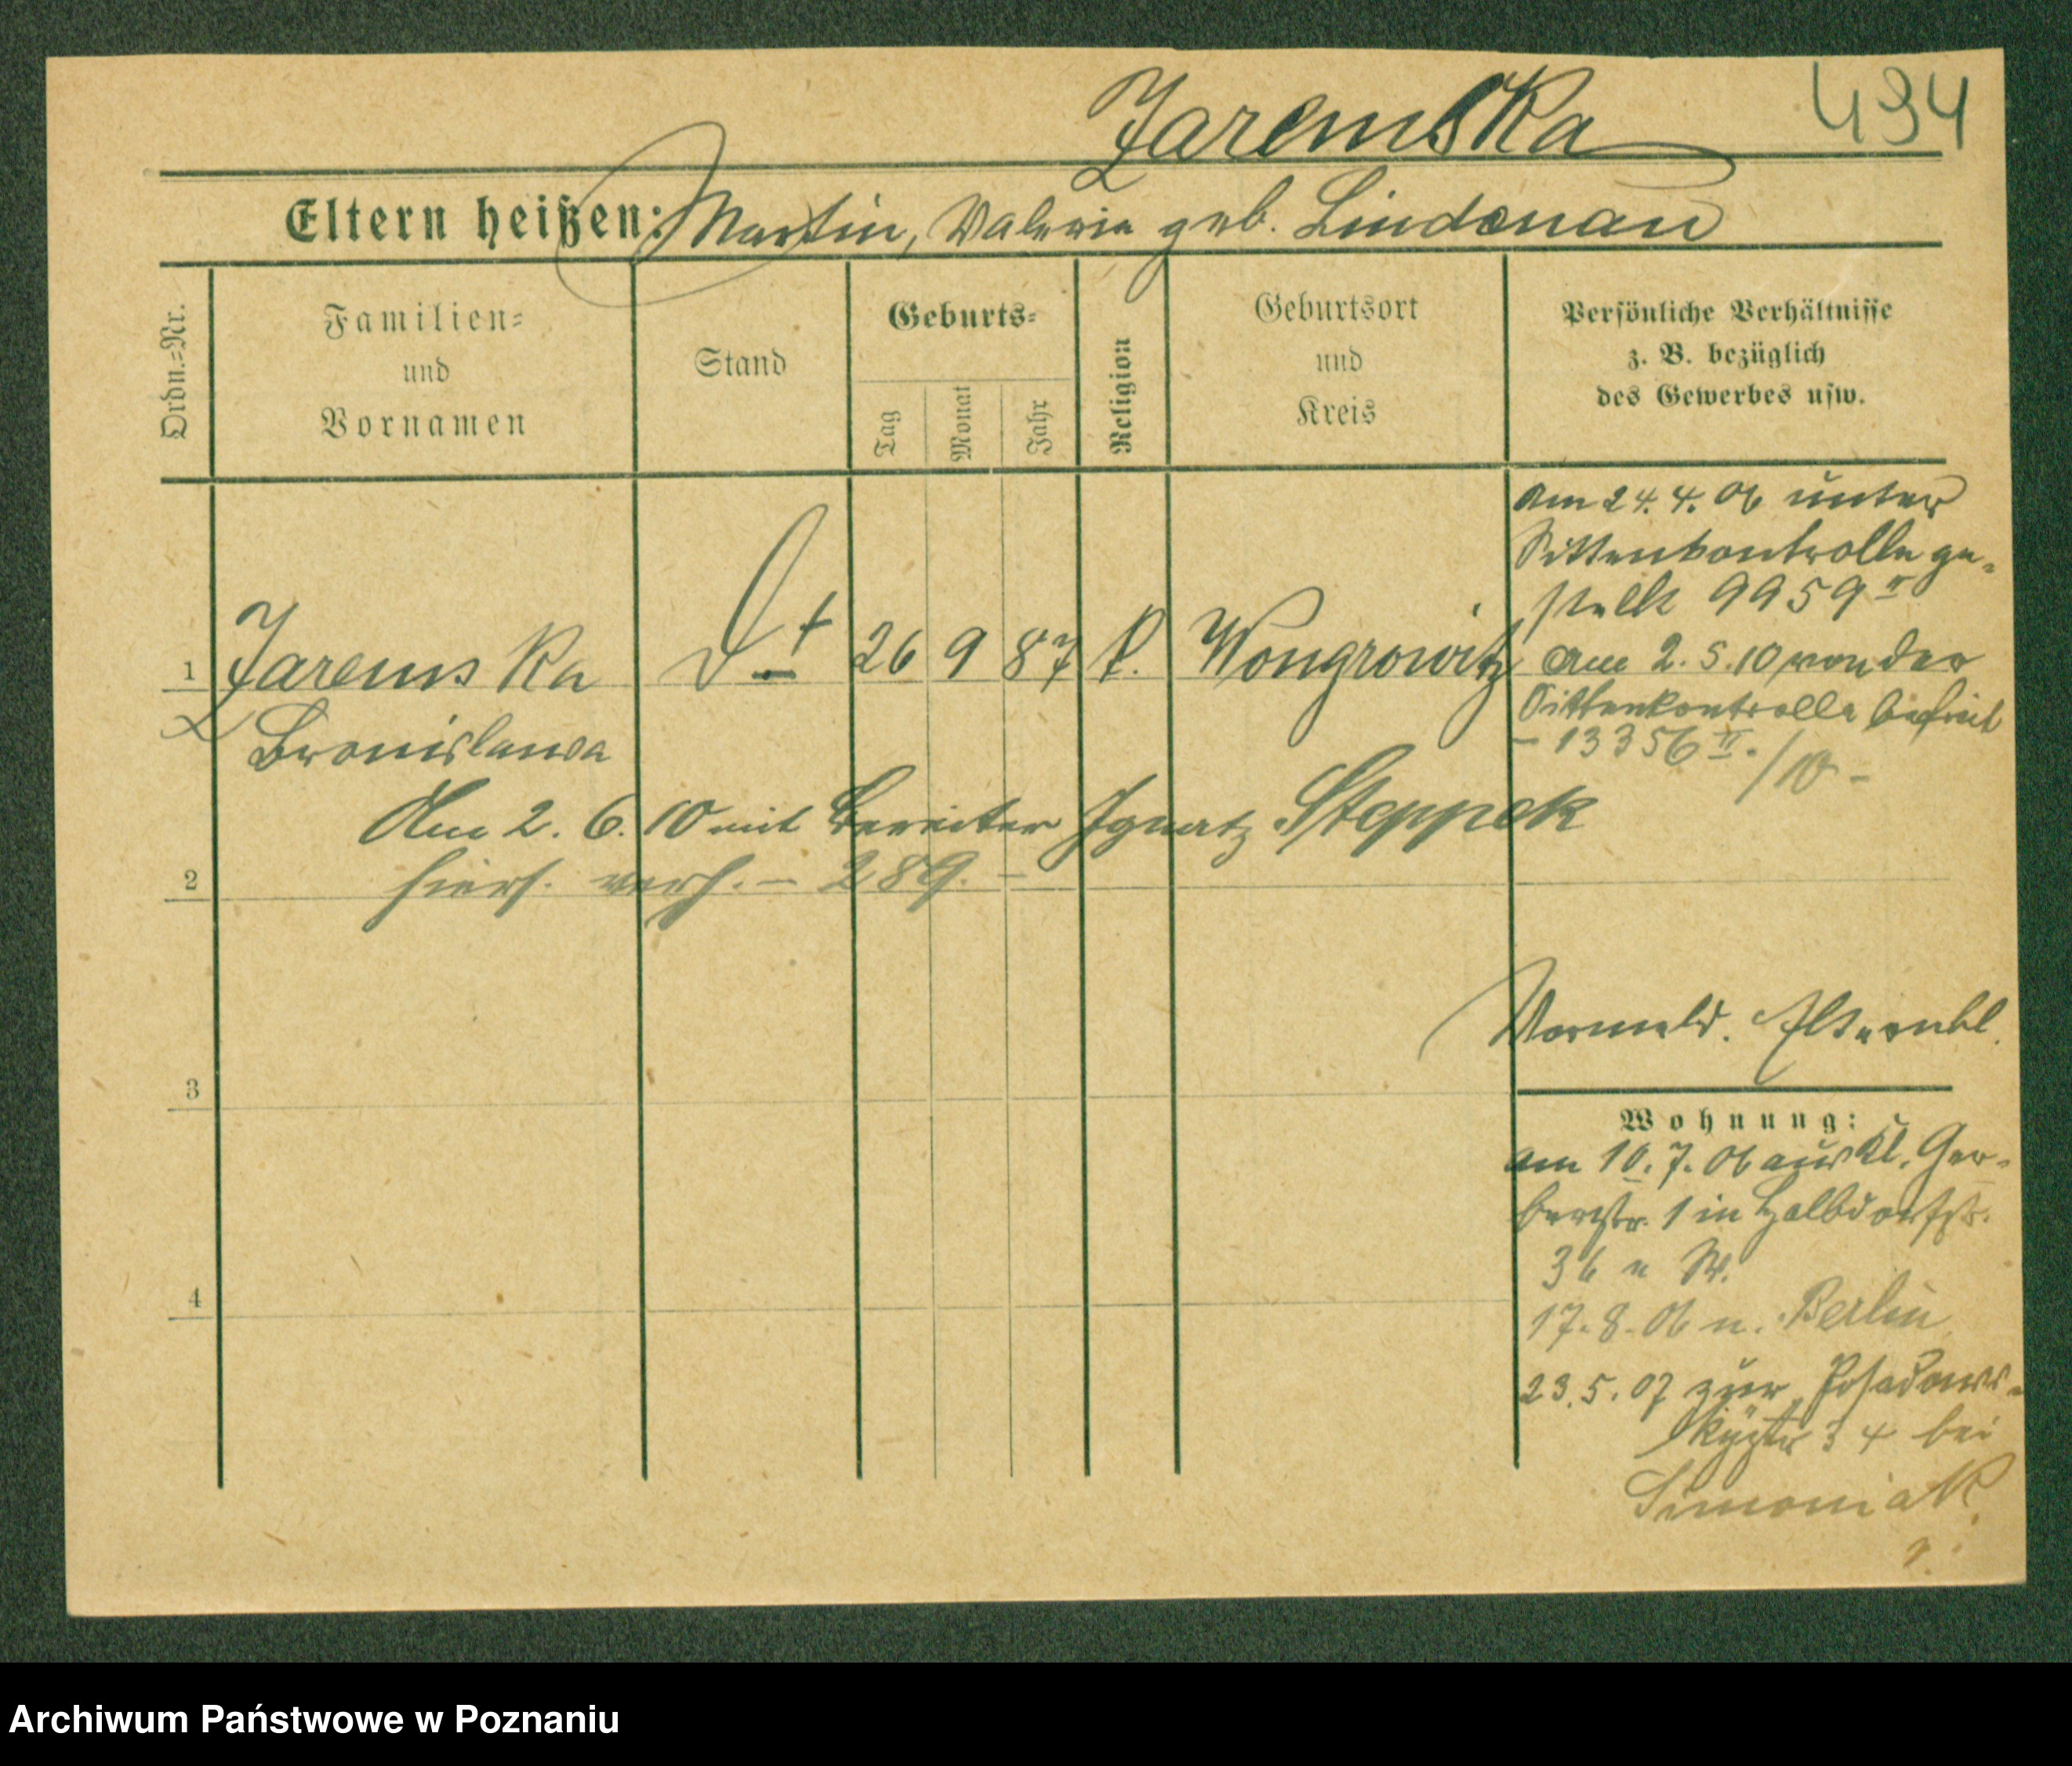 Jaremska
494
Eltern heißen: Martin, Valeria geb. Lindenau
Ordn.=Nr.
Familien=
und
Vornamen
Stand
Geburts=
Tag
Monat
Jahr
Religion
Geburtsort
und
Kreis
Persönliche Verhältnisse
z. B. bezüglich
des Gewerbes usw.
am 24. 4. 06 unter
Sittenkontrolle ge-
stellt 9959 II
1 Jaremska 26 9 87 k. Wongrowitz
Bronislawa
am 2. 5. 10 von der
Sittenkontrolle befreit
– 13356 II. /10 –
Am 2. 6. 10 mit Bereiter Ignatz Steppek
2 hiers. verh. – 289. –
Vormeld. Elternbl.
3
Wohnung:
am 10. 7. 06 aus Kl. Ger-
berstr. 1 in Halbdorfstr.
36 n W.
4
17. 8. 06 n. Berlin
23. 5. 07 zur Posadows-
kystr 34 bei
Simoniak
Archiwum Państwowe w Poznaniu